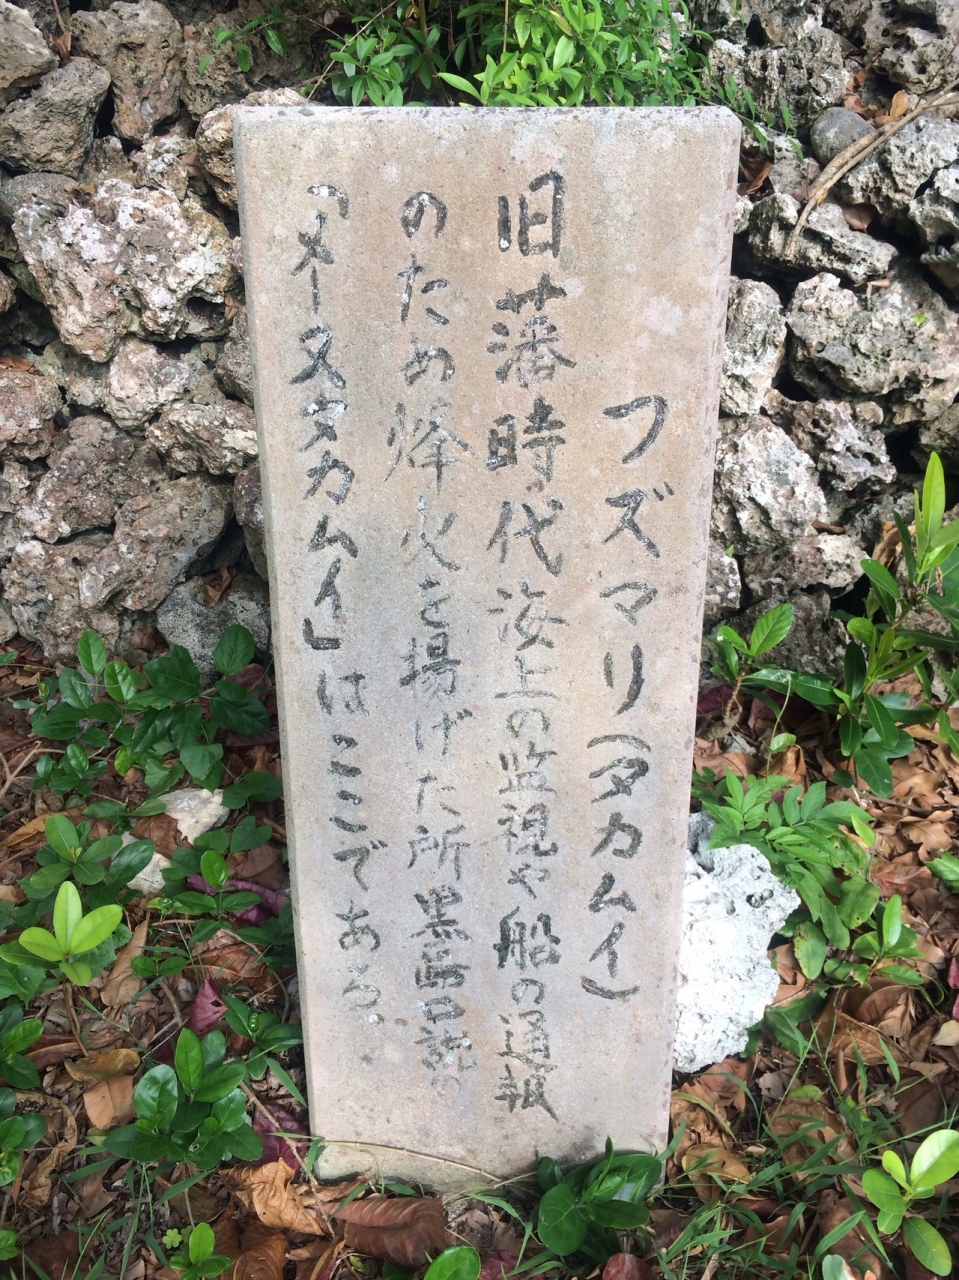 フズマリ(タカムイ)
旧藩時代海上の監視や船の通報
のため烽火を揚げた所黒島口説の
「メースヌタカムイ」はここである。